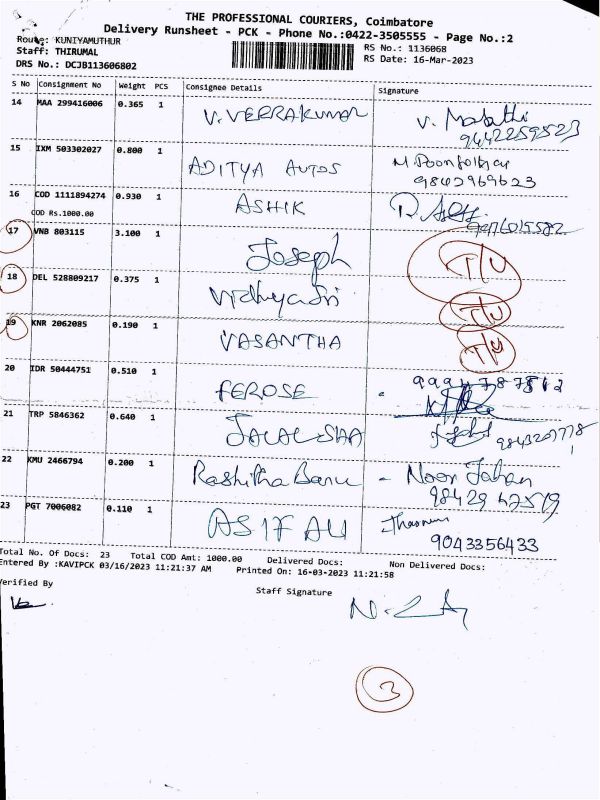 THE PROFESSIONAL COURIERS, Coimbatore
Delivery Runsheet - PCK - Phone No.:0422-3505555 - Page No.:2
Route: KUNIYAMUTHUR
RS No.: 1136068
Staff: THIRUMAL
RS Date: 16-Mar-2023
DRS No.: DCJB113606802
S No Consignment No Weight PCS Consignee Details Signature
14 MAA 299416006 0.365 1 V.VEERAKUMAR V. Malathi
9442259523
15 IXM 503302027 0.800 1 ADITYA AUTOS
9842969623
16 COD 1111894274 0.930 1 ASHIK
COD Rs.1000.00
17 VNB 803115 3.100 1 Joseph T/U
18 DEL 528809217 0.375 1 Vidhya Sri T/U
19 KNR 2062085 0.190 1 VASANTHA T/U
20 IDR 50444751 0.510 1 FEROSE
21 TRP 5846362 0.640 1 JALAL SHA
22 KMU 2466794 0.200 1 Rashitha Banu - Noor Jahan
98429 47519
23 PGT 7006082 0.110 1 ASIF ALI
9043356433
Total No. Of Docs: 23 Total COD Amt: 1000.00 Delivered Docs: Non Delivered Docs:
Entered By :KAVIPCK 03/16/2023 11:21:37 AM Printed On: 16-03-2023 11:21:58
Verified By Staff Signature
3